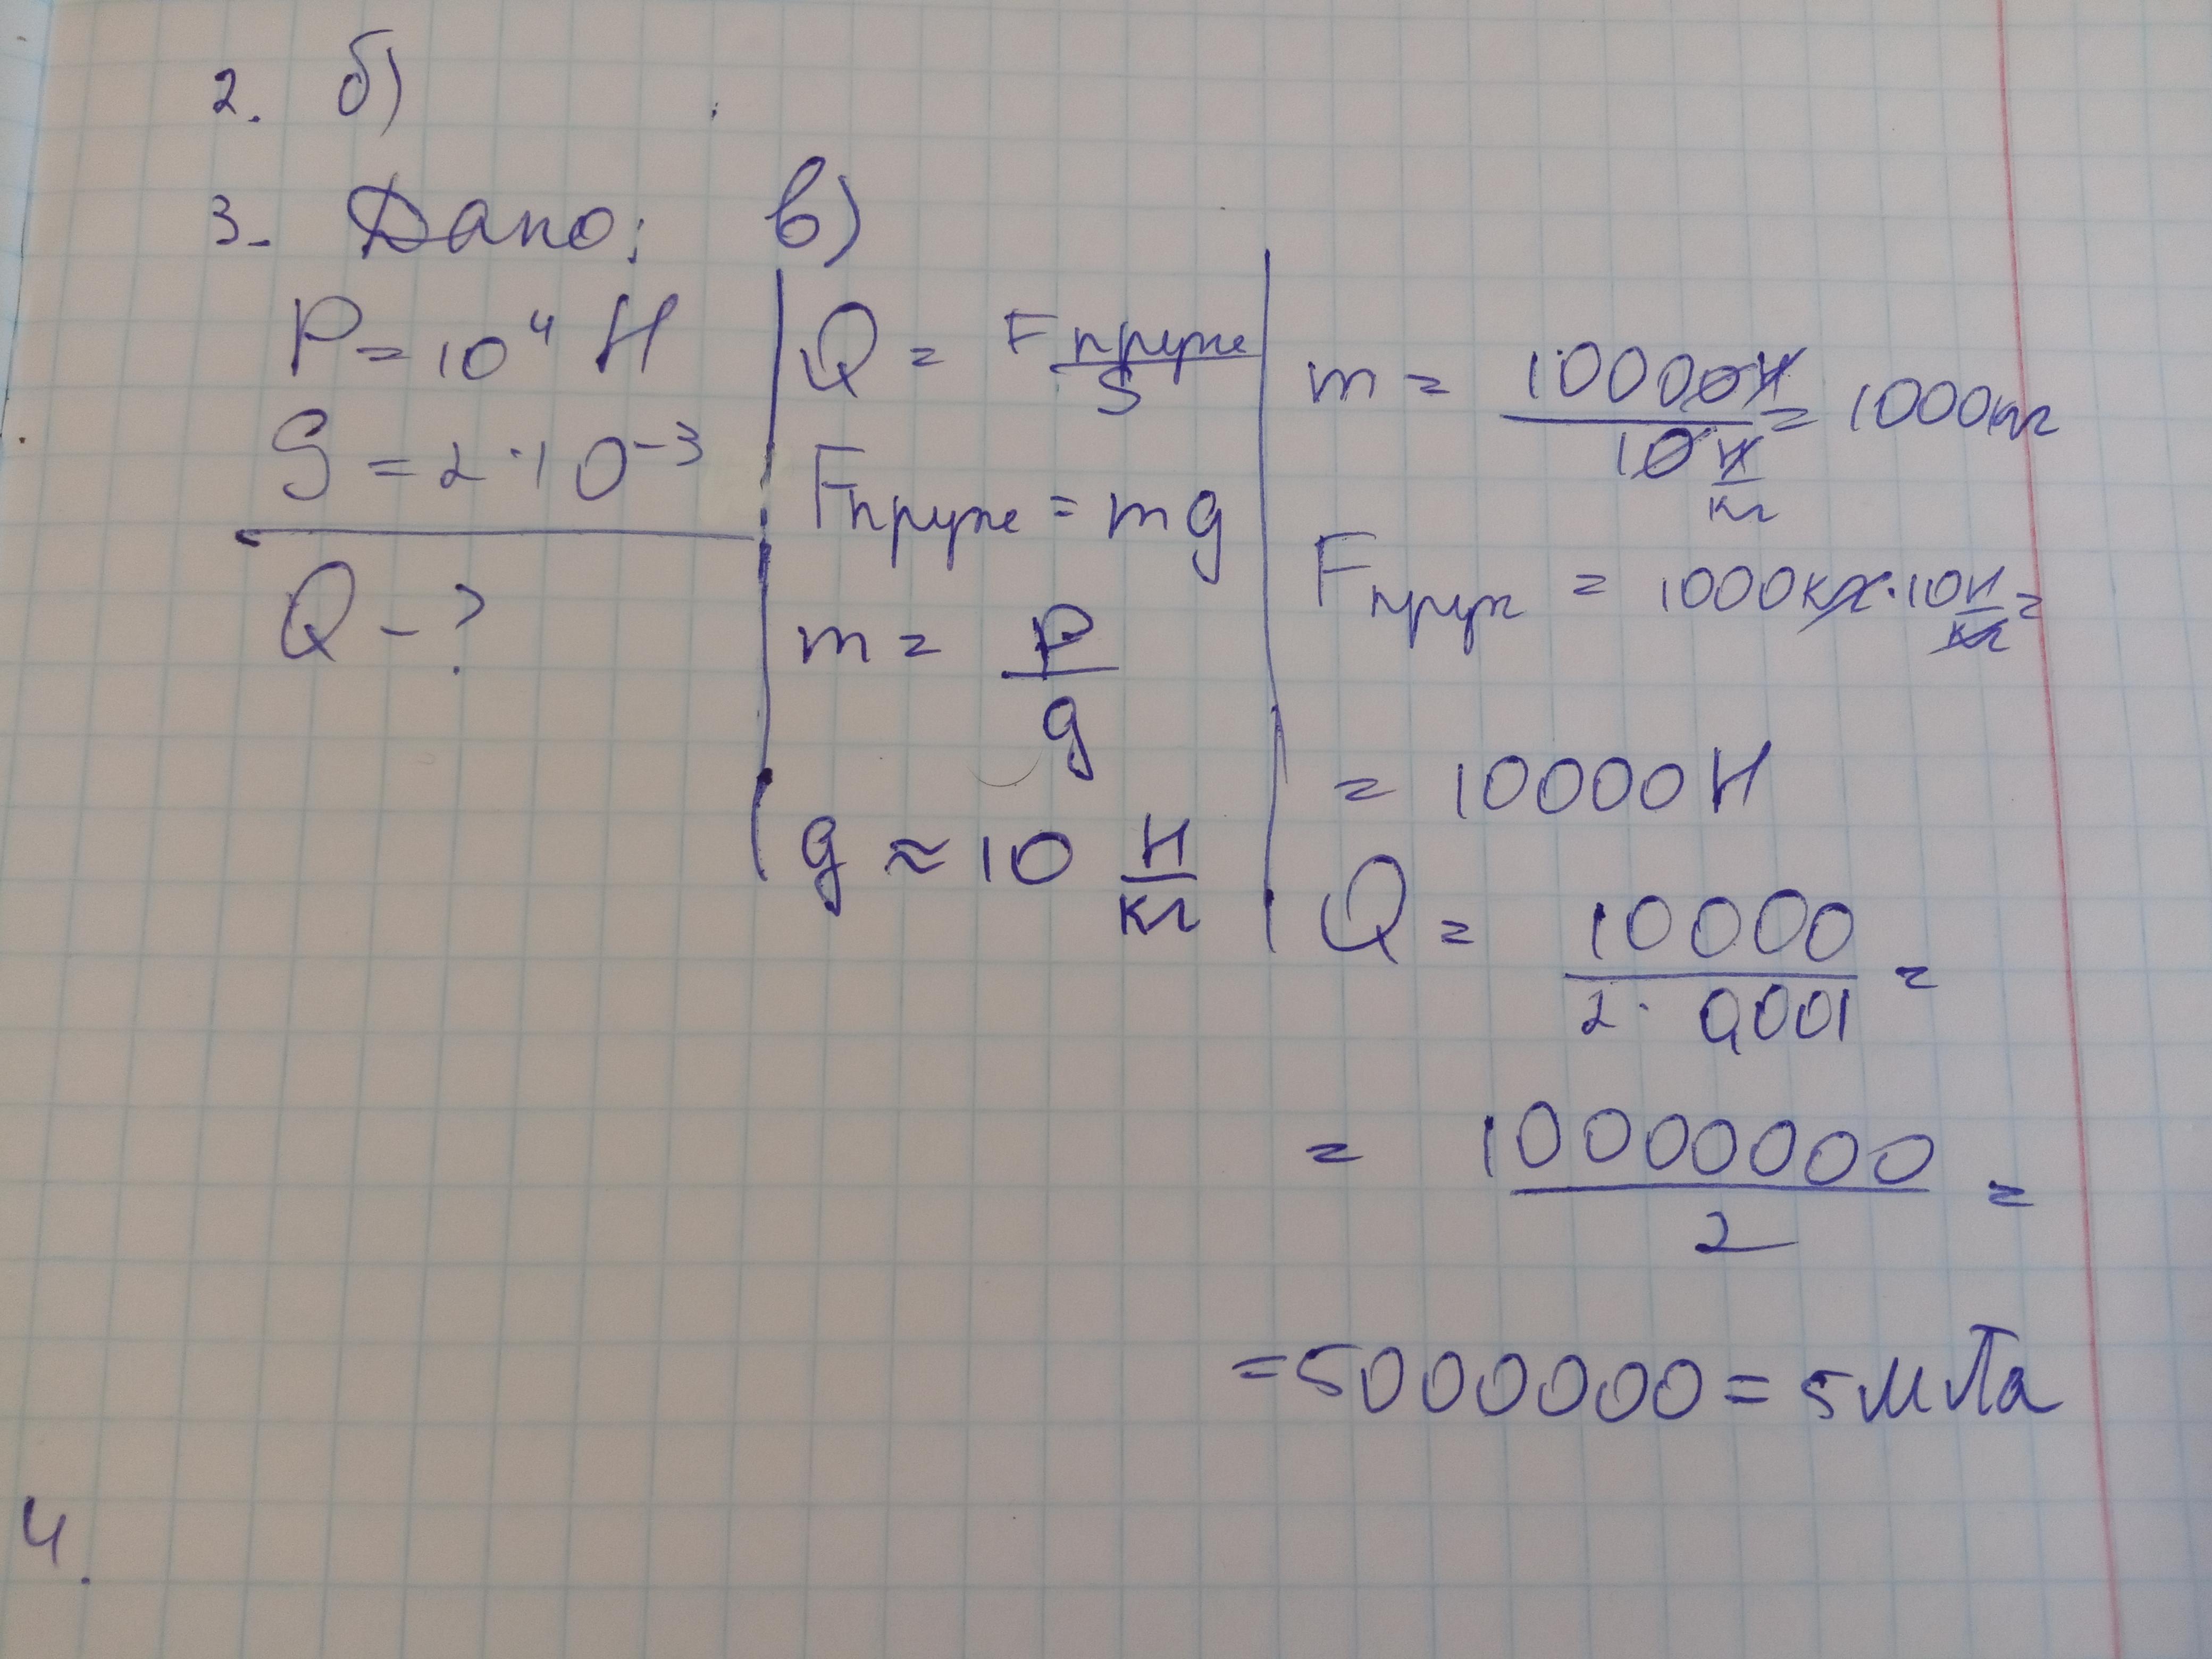 2. б)
3. Дано: в)
P = 10⁴ Н
S = 2·10⁻³
Q - ?
Q = Fпруж/S
Fпруж = mg
m = P/g
g ≈ 10 Н/кг
m = 10000Н/10 Н/кг = 1000кг
Fпруж = 1000кг·10Н/кг =
= 10000Н
Q = 10000/2·0,001 =
= 10000000/2 =
= 5000000 = 5мПа
4.